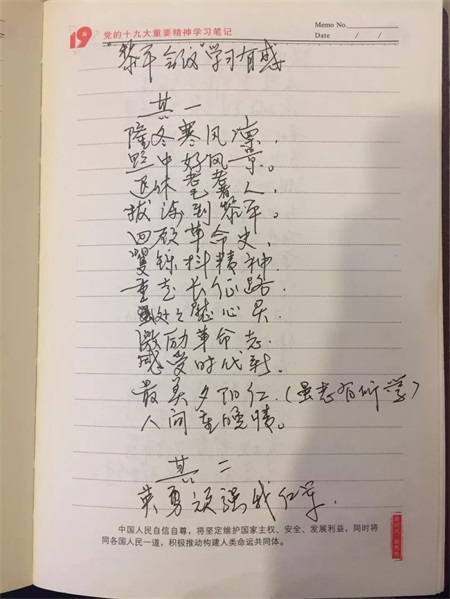 19大
党的十九大重要精神学习笔记
Memo No.
Date / /
"黎平会议"学习有感
其一
隆冬寒风凛,
黔中好风景。
退休老耄人,
跋涉到黎平。
回顾革命史,
矍铄抖精神,
重走长征路,
处处慰心灵
激励革命志,
感受时代新,
最美夕阳红,(虽老有所学)
人间重晚晴。
其二
英勇顽强我红军,
中国人民自信自尊,将坚定维护国家主权、安全、发展利益,同时将
同各国人民一道,积极推动构建人类命运共同体。